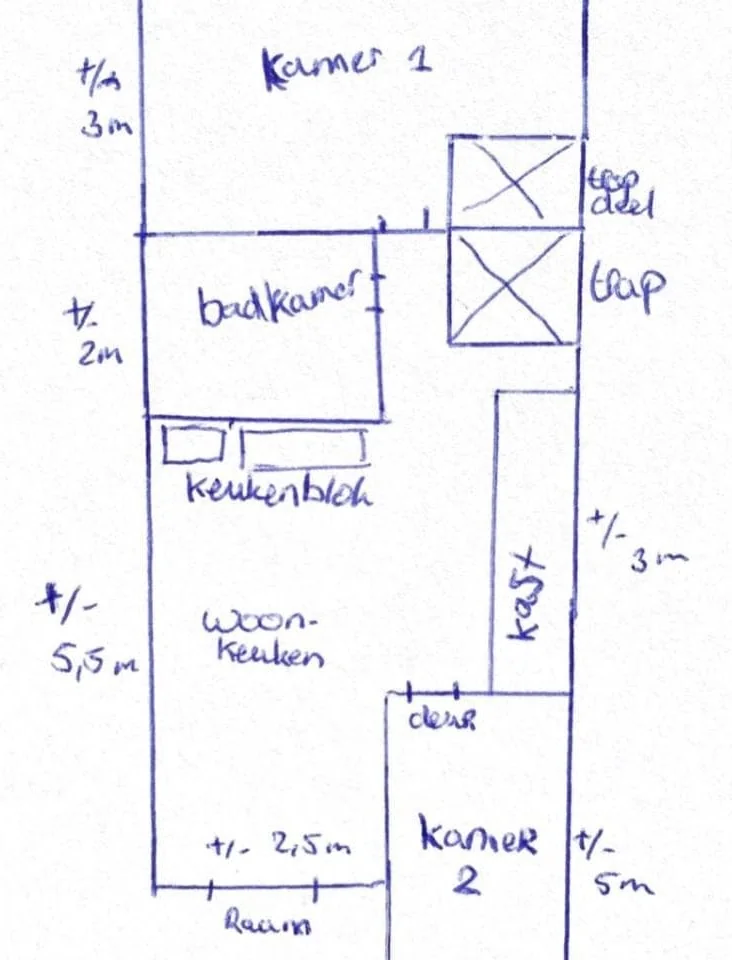 Kamer 1
+/-
3m
trap
deel
badkamer
trap
+/-
2m
keukenblok
+/-
3m
kast
+/-
5,5m
woon-
keuken
deur
+/- 2,5m
kamer
2
+/-
5m
Raam